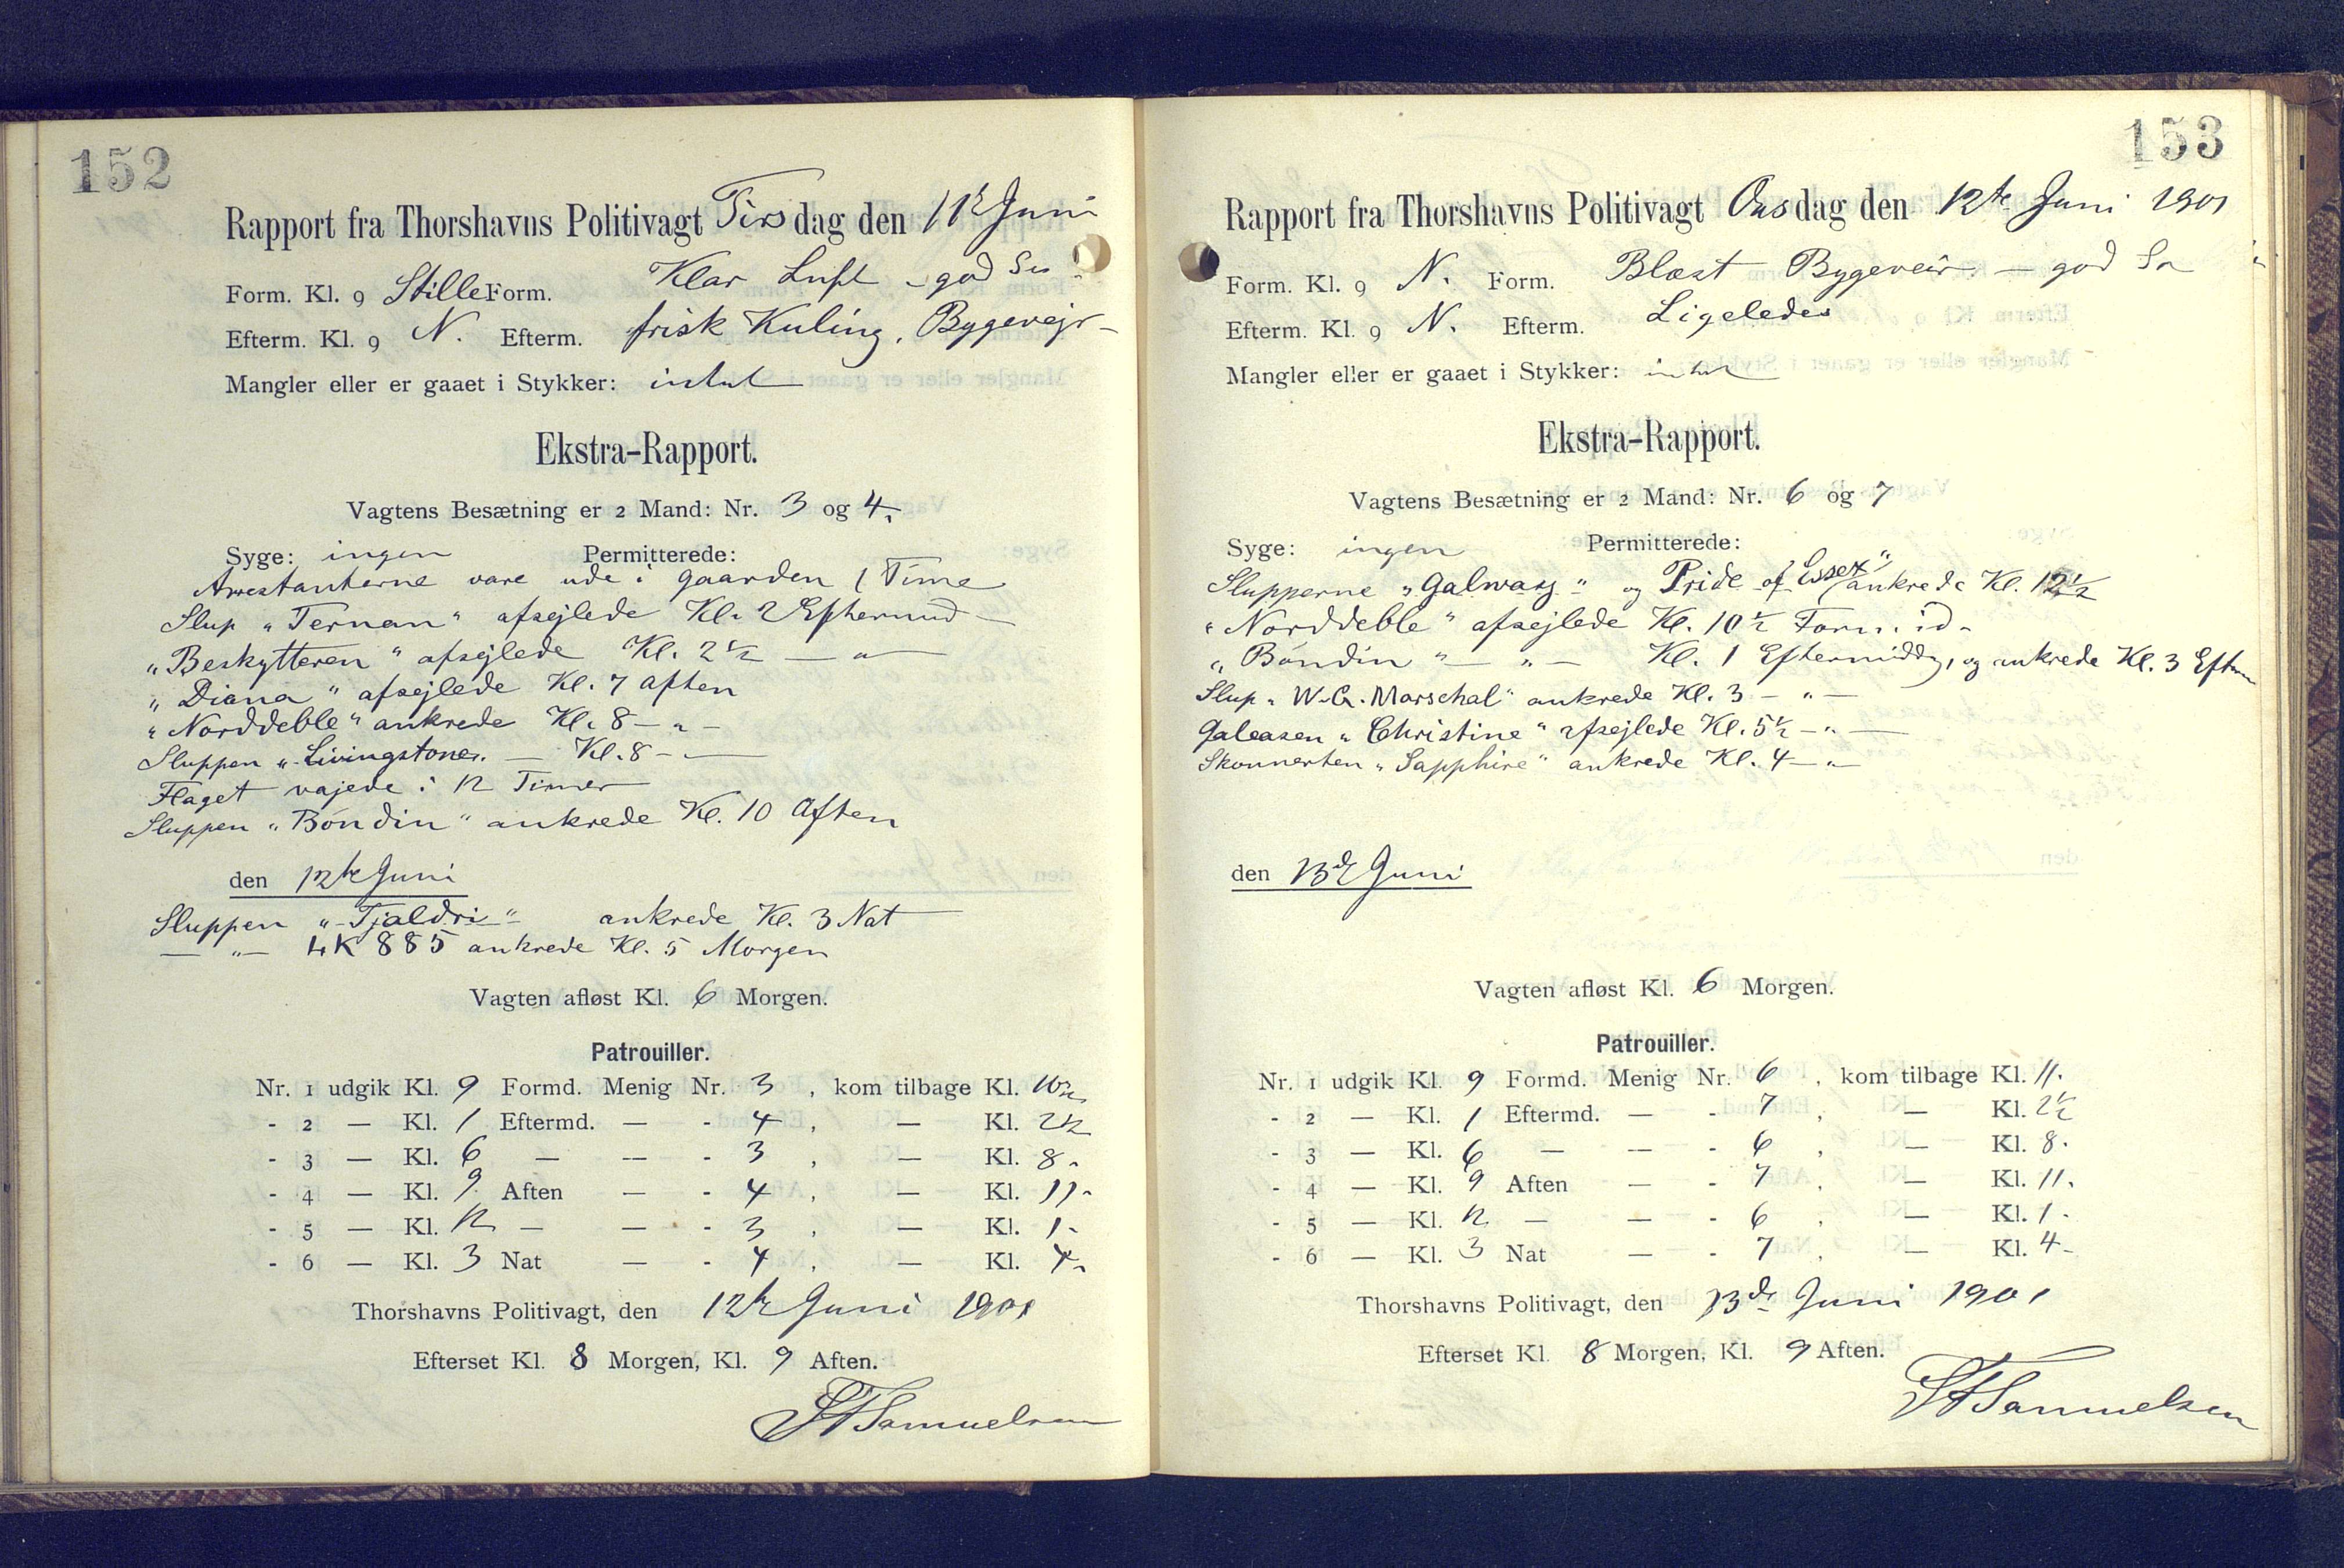 152
Rapport fra Thorshavns Politivagt Tirsdag den 11te Juni
Form. Kl. 9 Stille Form. Klar Luft – god Sa
Efterm. Kl. 9 N. Efterm. frisk Kuling, Bygevejr –
Mangler eller er gaaet i Stykker: intet
Ekstra-Rapport.
Vagtens Besætning er 2 Mand: Nr. 3 og 4.
Syge: ingen Permitterede:
Arrestanterne vare ude i Gaarden 1 Time
Slup „Ternan“ afsejlede Kl. 2 Eftermid –
„Beskytteren“ afsejlede Kl. 2½ — „ —
„Diana“ afsejlede Kl. 7 Aften
„Norddeble“ ankrede Kl. 8 – „ –
Sluppen „Livingstone„ — Kl. 8 – „ —
Flaget vajede i 12 Timer
Sluppen „Bóndin“ ankrede Kl. 10 Aften
den 12te Juni
Sluppen „Tjaldri“ ankrede Kl. 3 Nat
— „ — LK 885 ankrede Kl. 5 Morgen
Vagten afløst Kl. 6 Morgen.
Patrouiller.
Nr. 1 udgik Kl. 9 Formd. Menig Nr. 3, kom tilbage Kl. 10½
- 2 — Kl. 1 Eftermd. — - 4, — Kl. 2½
- 3 — Kl. 6 — — - 3, — Kl. 8.
- 4 — Kl. 9 Aften — - 4, — Kl. 11.
- 5 — Kl. 12 — — - 3, — Kl. 1.
- 6 — Kl. 3 Nat — - 4, — Kl. 4.
Thorshavns Politivagt, den 12te Juni 1901
Efterset Kl. 8 Morgen, Kl. 9 Aften.
Samuelsen
153
Rapport fra Thorshavns Politivagt Onsdag den 12te Juni 1901
Form. Kl. 9 N. Form. Blæst Bygeveir – god Sa
Efterm. Kl. 9 N. Efterm. Ligeledes
Mangler eller er gaaet i Stykker: intet
Ekstra-Rapport.
Vagtens Besætning er 2 Mand: Nr. 6 og 7
Syge: ingen Permitterede:
Slupperne „Galway“ og Pride of Essex“ ankrede Kl. 12½
„Norddeble“ afsejlede Kl. 10½ Form.id.
„Bóndin“ – „ – Kl. 1 Eftermiddg, og ankrede Kl. 3 Eftm
Slup „W. G. Marschal“ ankrede Kl. 3 – „ –
Galeasen „Christine“ afsejlede Kl. 5½ – „ –
Skonnerten „Sapphire“ ankrede Kl. 4 – „ –
den 13de Juni
Vagten afløst Kl. 6 Morgen.
Patrouiller.
Nr. 1 udgik Kl. 9 Formd. Menig Nr. 6, kom tilbage Kl. 11.
- 2 — Kl. 1 Eftermd. — - 7, — Kl. 2½
- 3 — Kl. 6 — — - 6, — Kl. 8.
- 4 — Kl. 9 Aften — - 7, — Kl. 11.
- 5 — Kl. 12 — — - 6, — Kl. 1.
- 6 — Kl. 3 Nat — - 7, — Kl. 4-
Thorshavns Politivagt, den 13de Juni 1901
Efterset Kl. 8 Morgen, Kl. 9 Aften.
Samuelsen